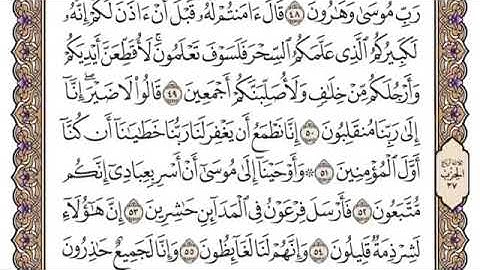 رَبِّ مُوسَىٰ وَهَٰرُونَ ٤٨ قَالَ ءَامَنتُمْ لَهُۥ قَبْلَ أَنْ ءَاذَنَ لَكُمْ إِنَّهُۥ
لَكَبِيرُكُمُ ٱلَّذِى عَلَّمَكُمُ ٱلسِّحْرَ فَلَسَوْفَ تَعْلَمُونَ ۚ لَأُقَطِّعَنَّ أَيْدِيَكُمْ
وَأَرْجُلَكُم مِّنْ خِلَٰفٍ وَلَأُصَلِّبَنَّكُمْ أَجْمَعِينَ ٤٩ قَالُوا۟ لَا ضَيْرَ ۖ إِنَّآ
إِلَىٰ رَبِّنَا مُنقَلِبُونَ ٥٠ إِنَّا نَطْمَعُ أَن يَغْفِرَ لَنَا رَبُّنَا خَطَٰيَٰنَآ أَن كُنَّآ
أَوَّلَ ٱلْمُؤْمِنِينَ ٥١ ۞ وَأَوْحَيْنَآ إِلَىٰ مُوسَىٰٓ أَنْ أَسْرِ بِعِبَادِىٓ إِنَّكُم
مُّتَّبَعُونَ ٥٢ فَأَرْسَلَ فِرْعَوْنُ فِى ٱلْمَدَآئِنِ حَٰشِرِينَ ٥٣ إِنَّ هَٰٓؤُلَآءِ
لَشِرْذِمَةٌ قَلِيلُونَ ٥٤ وَإِنَّهُمْ لَنَا لَغَآئِظُونَ ٥٥ وَإِنَّا لَجَمِيعٌ حَٰذِرُونَ
الحزب
٣٧